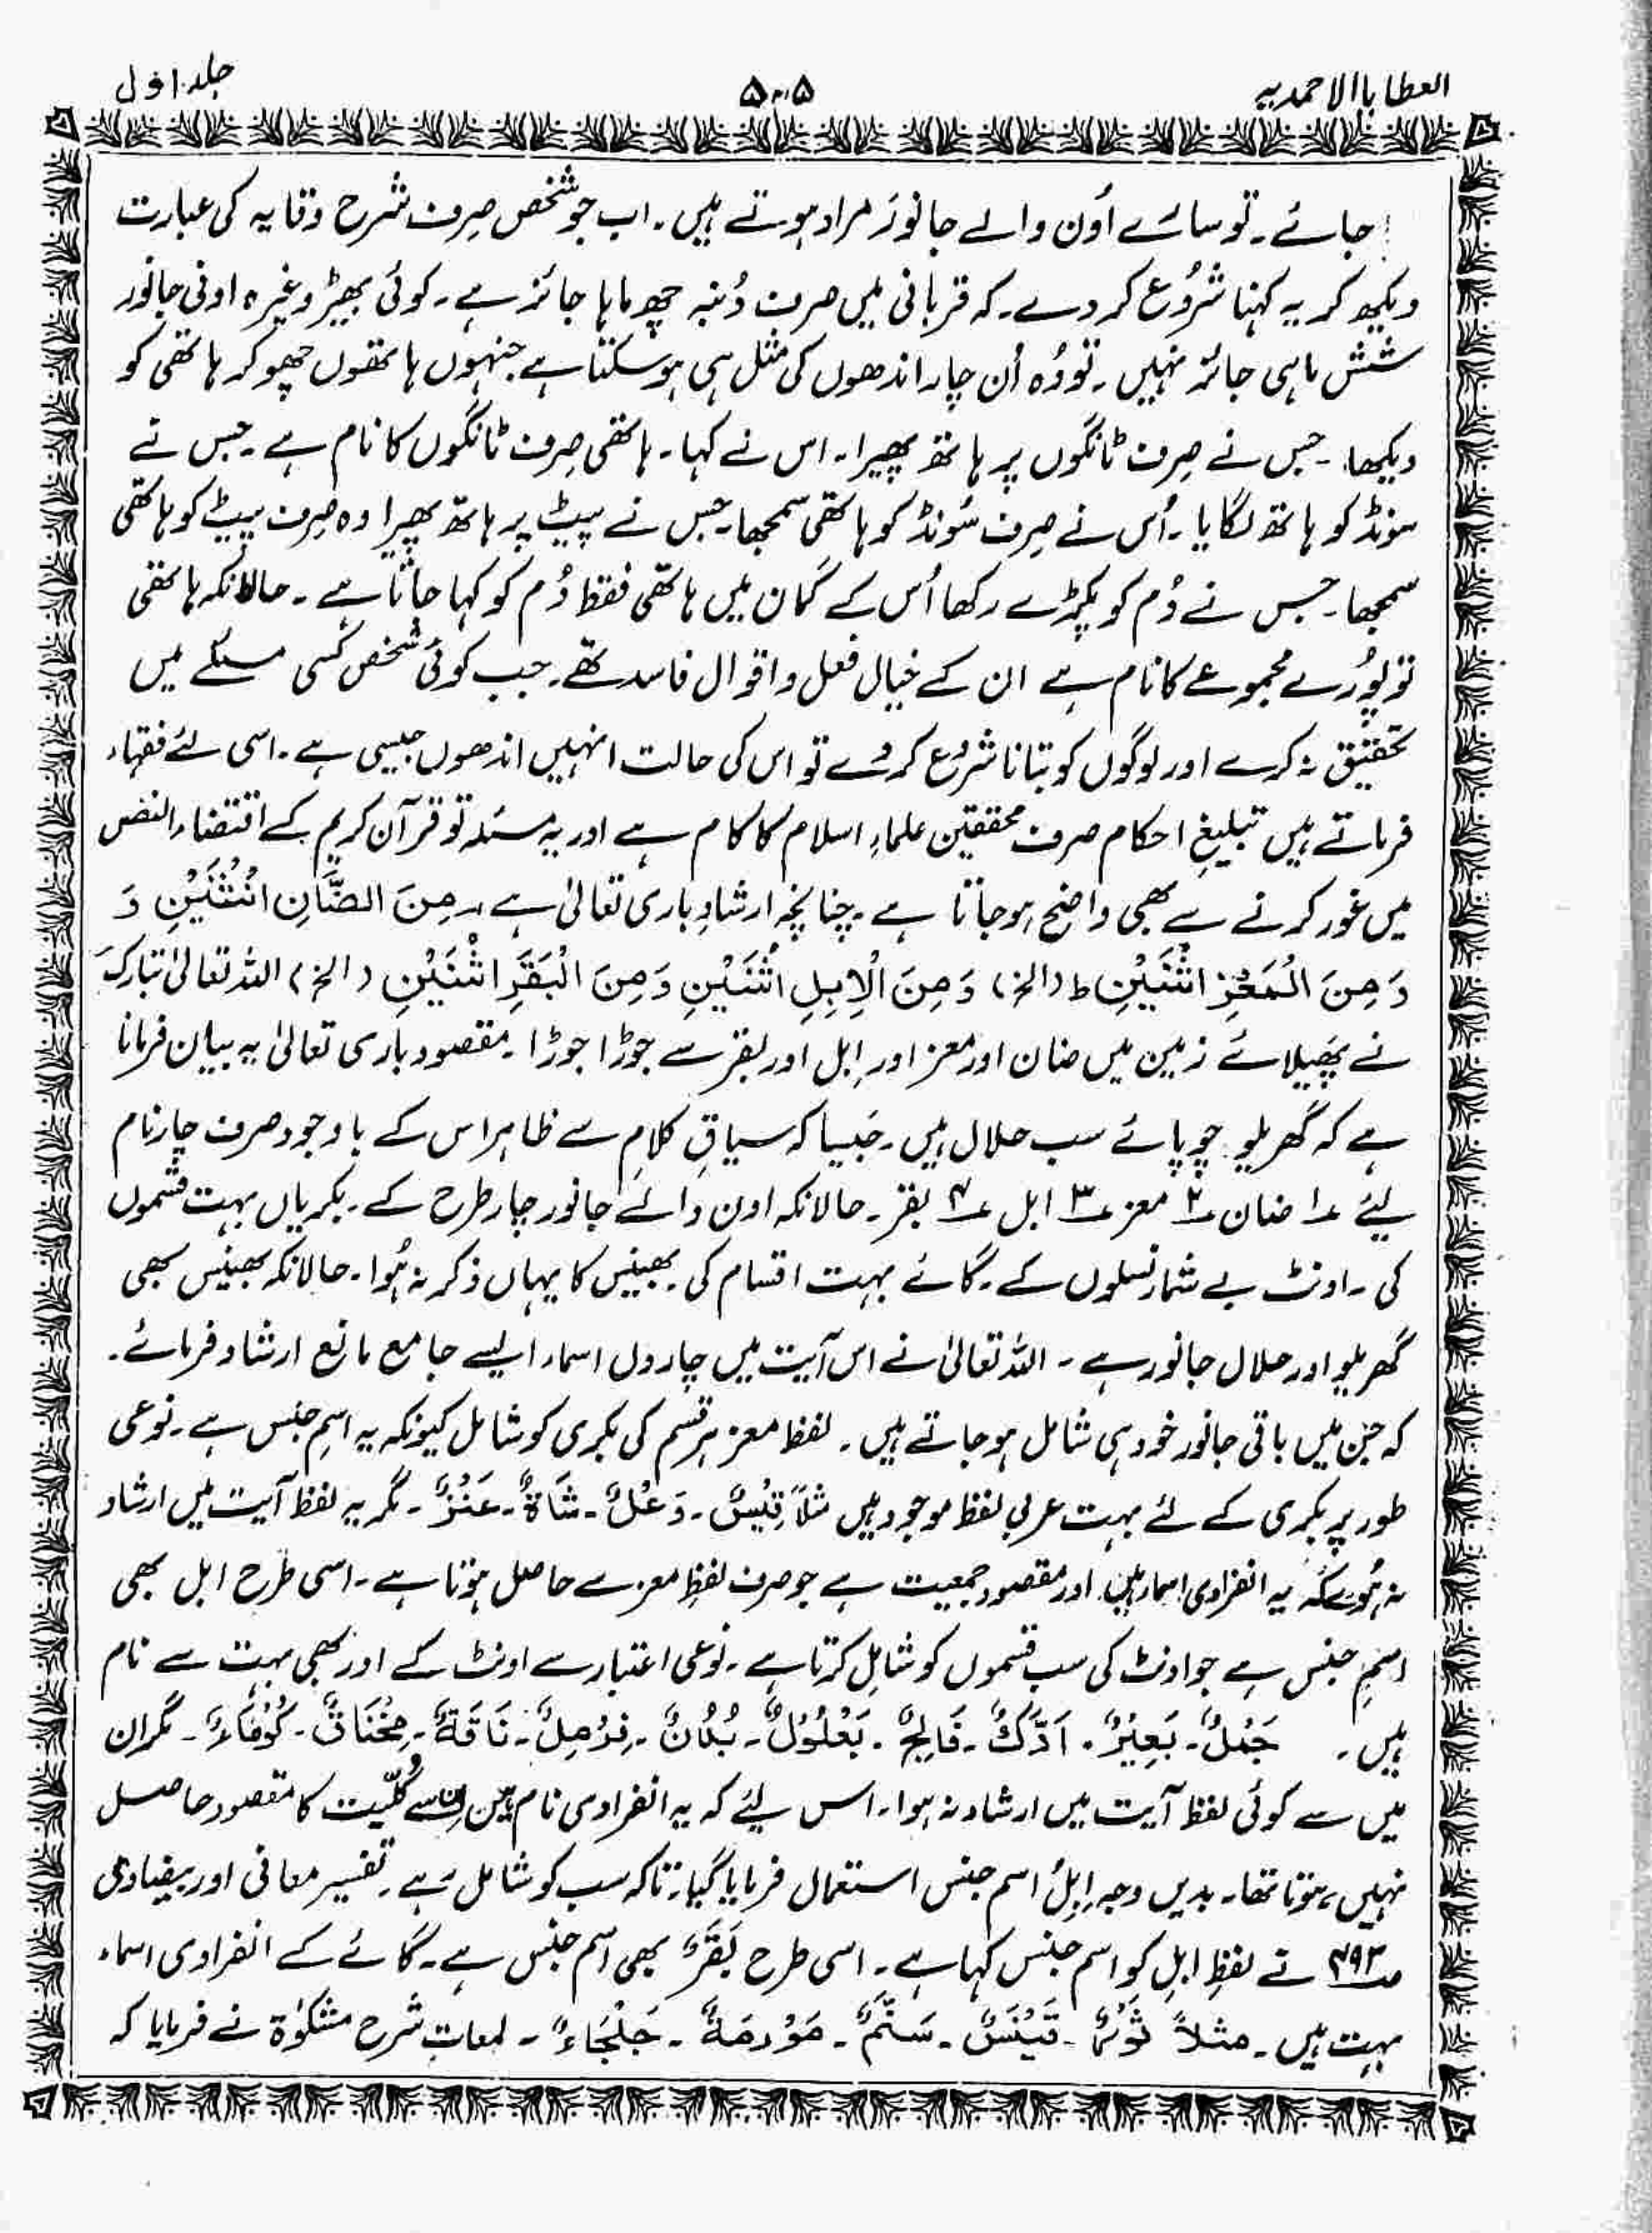 العطایا الاحمدیہ
۵۰۵
جلد اول
جائے۔ تو سائے اُون والے جانور مراد ہوتے ہیں۔ اب جو شخص صِرف شرح وقایہ کی عبارت
دیکھ کر یہ کہنا شرُوع کر دے۔ کہ قربانی میں صرف دُنبہ چھ ماہا جائز ہے۔ کوئی بھیڑ وغیرہ اونی جانور
شش ماہی جائز نہیں۔ تو وُہ اُن چار اندھوں کی مثل ہی ہو سکتا ہے جنہوں ہاتھوں چھو کر ہاتھی کو
دیکھا۔ جس نے صِرف ٹانگوں پر ہاتھ پھیرا۔ اس نے کہا۔ ہاتھی صِرف ٹانگوں کا نام ہے۔ جس نے
سونڈ کو ہاتھ لگایا۔ اُس نے صِرف سُونڈ کو ہاتھی سمجھا۔ جس نے پیٹ پر ہاتھ پھیرا وہ صِرف پیٹ کو ہاتھی
سمجھا۔ جس نے دُم کو پکڑے رکھا اُس کے گمان میں ہاتھی فقط دُم کو کہا جاتا ہے۔ حالانکہ ہاتھی
تو پُورے مجموعے کا نام ہے ان کے خیال فعل و اقوال فاسد تھے۔ جب کوئی شخص کسی مسئلے میں
تحقیق نہ کرے اور لوگوں کو بتانا شروع کر دے تو اس کی حالت انہیں اندھوں جیسی ہے۔ اسی لئے فقہاء
فرماتے ہیں تبلیغِ احکام صرف محققین علماءِ اسلام کا کام ہے اور یہ مسئلہ تو قرآن کریم کے اقتضاء النص
میں غور کرنے سے بھی واضح ہو جاتا ہے۔ چنانچہ ارشادِ باری تعالیٰ ہے۔ مِنَ الضَّاَنِ اثْنَیْنِ وَ
وَمِنَ الْمَعْزِ اثْنَیْنِ ط (الخ) وَمِنَ الْاِبِلِ اثْنَیْنِ وَمِنَ الْبَقَرِ اثْنَیْنِ (الخ) اللہ تعالیٰ تبارکَ
نے پھیلائے زمین میں ضان اور معز اور اِبل اور بقر سے جوڑا جوڑا۔ مقصود باری تعالیٰ یہ بیان فرمانا
ہے کہ گھریلو چوپائے سب حلال ہیں۔ جَیسا کہ سیاقِ کلامِ سے ظاہر اس کے باوجود صرف چار نام
لیئے ۱؎ ضان ۲؎ معز ۳؎ ابل ۴؎ بقر۔ حالانکہ اون والے جانور چار طرح کے۔ بکریاں بہت قسموں
کی۔ اونٹ بے شمار نسلوں کے۔ گائے بہت اقسام کی۔ بھینس کا یہاں ذکر نہ ہُوا۔ حالانکہ بھینس بھی
گھریلو اور حلال جانور ہے۔ اللہ تعالیٰ نے اس آیت میں چاروں اسماء ایسے جامع مانع ارشاد فرمائے۔
کہ جن میں باقی جانور خود ہی شامل ہو جاتے ہیں۔ لفظ معز ہر قسم کی بکری کو شامل کیونکہ یہ اسمِ جنس ہے۔ نوعی
طور پر بکری کے لئے بہت عربی لفظ موجود ہیں مثلاً تَیْسٌ۔ وَعْلٌ۔ شَاةٌ۔ عَنْزٌ۔ مگر یہ لفظ آیت میں ارشاد
نہ ہُوئے کہ یہ انفرادی اسماء ہیں اور مقصود جمعیت ہے جو صرف لفظِ معز سے حاصل ہوتا ہے۔ اسی طرح ابل بھی
اسمِ جنس ہے جو اونٹ کی سب قسموں کو شامِل کرتا ہے۔ نوعی اعتبار سے اونٹ کے اور بھی بہت سے نام
ہیں۔ جَمْلٌ۔ بَعِیْرٌ۔ اَدَّكٌ۔ فَالِجٌ۔ نَاقَةٌ۔ كُوْمَاءٌ۔ مگر ان
میں سے کوئی لفظ آیت میں ارشاد نہ ہوا۔ اس لیئے کہ یہ انفرادی نام ہیں ان سے کُلّیت کا مقصود حاصل
نہیں ہوتا تھا۔ بدیں وجہ اِبِلٌ اسم جنس استعمال فرمایا گیا۔ تاکہ سب کو شامل رہے۔ تفسیر معانی اور بیضاوی
صـ۴۹۳ نے لفظِ ابل کو اسم جنس کہا ہے۔ اسی طرح بَقَرٌ بھی اسم جنس ہے۔ گائے کے انفرادی اسماء
بہت ہیں۔ مثلاً ثَوْرٌ۔ جَلْجَاءٌ۔ لمعاتِ شرح مشکوٰة نے فرمایا کہ